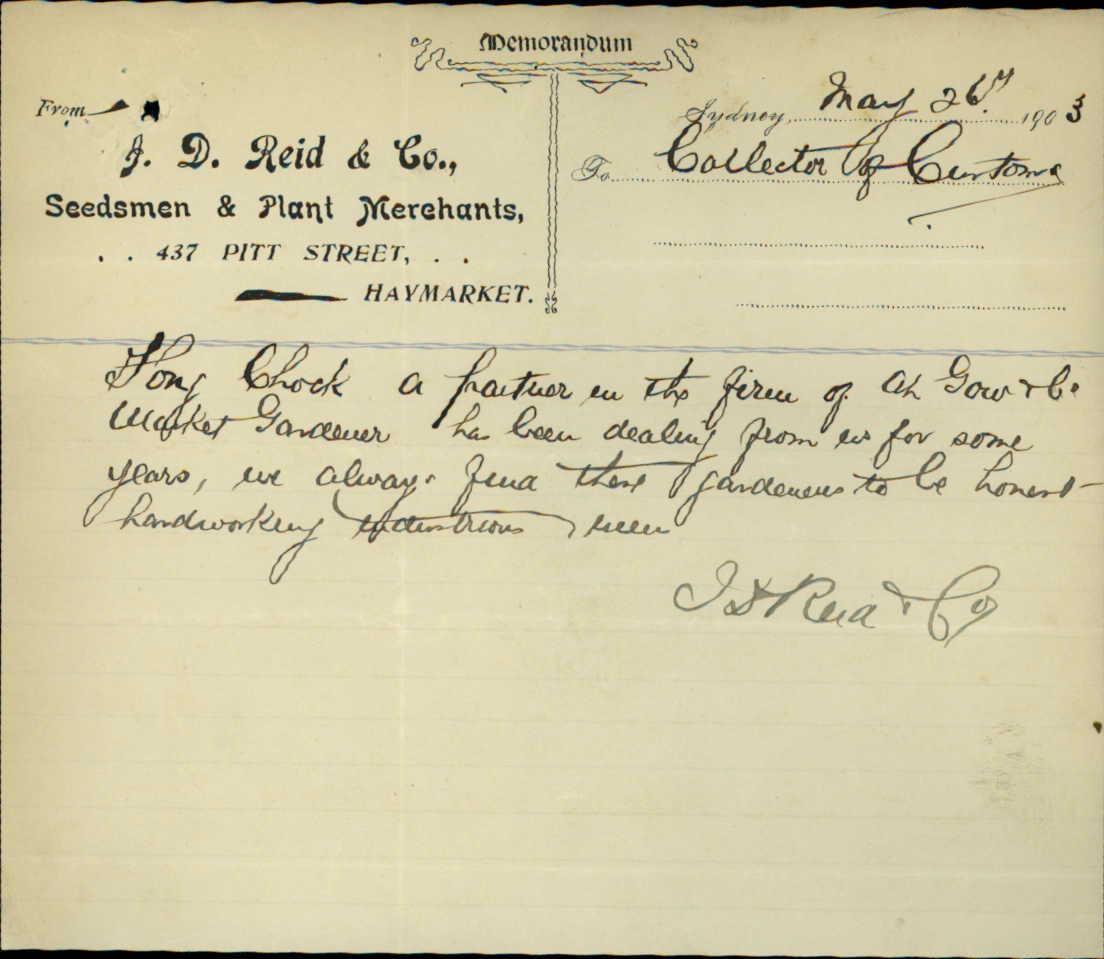 Memorandum
From
J. D. Reid & Co.,
Seedsmen & Plant Merchants,
. . 437 PITT STREET, . .
HAYMARKET.
Sydney, May 26th 1903
To Collector of Customs
Hong Chock a partner in the firm of Ah Gow & Co
Market Gardener has been dealing from us for some
years, we always find these gardeners to be honest
hardworking industrious men
J D Reid & Co